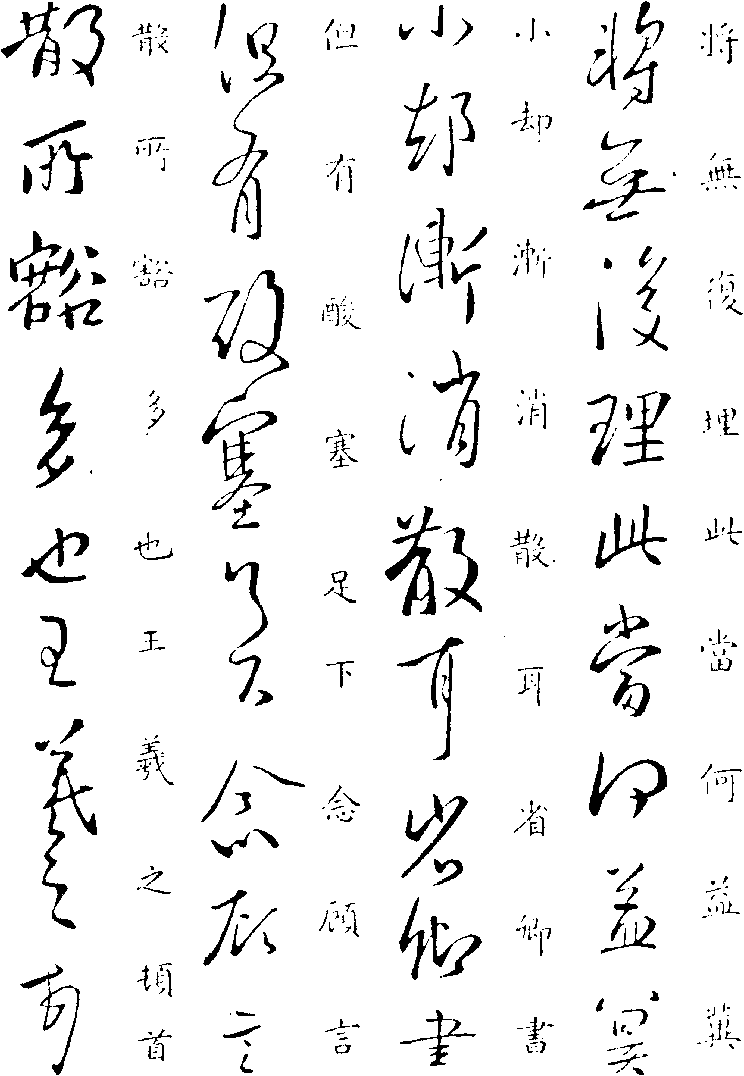 將無復理此當何益冀
將無復理此當何益冀
小却漸消散耳省卿書
小却漸消散耳省卿書
但有酸塞足下念顧言
但有酸塞足下念顧言
散所豁多也王羲之頓首
散所豁多也王羲之頓首